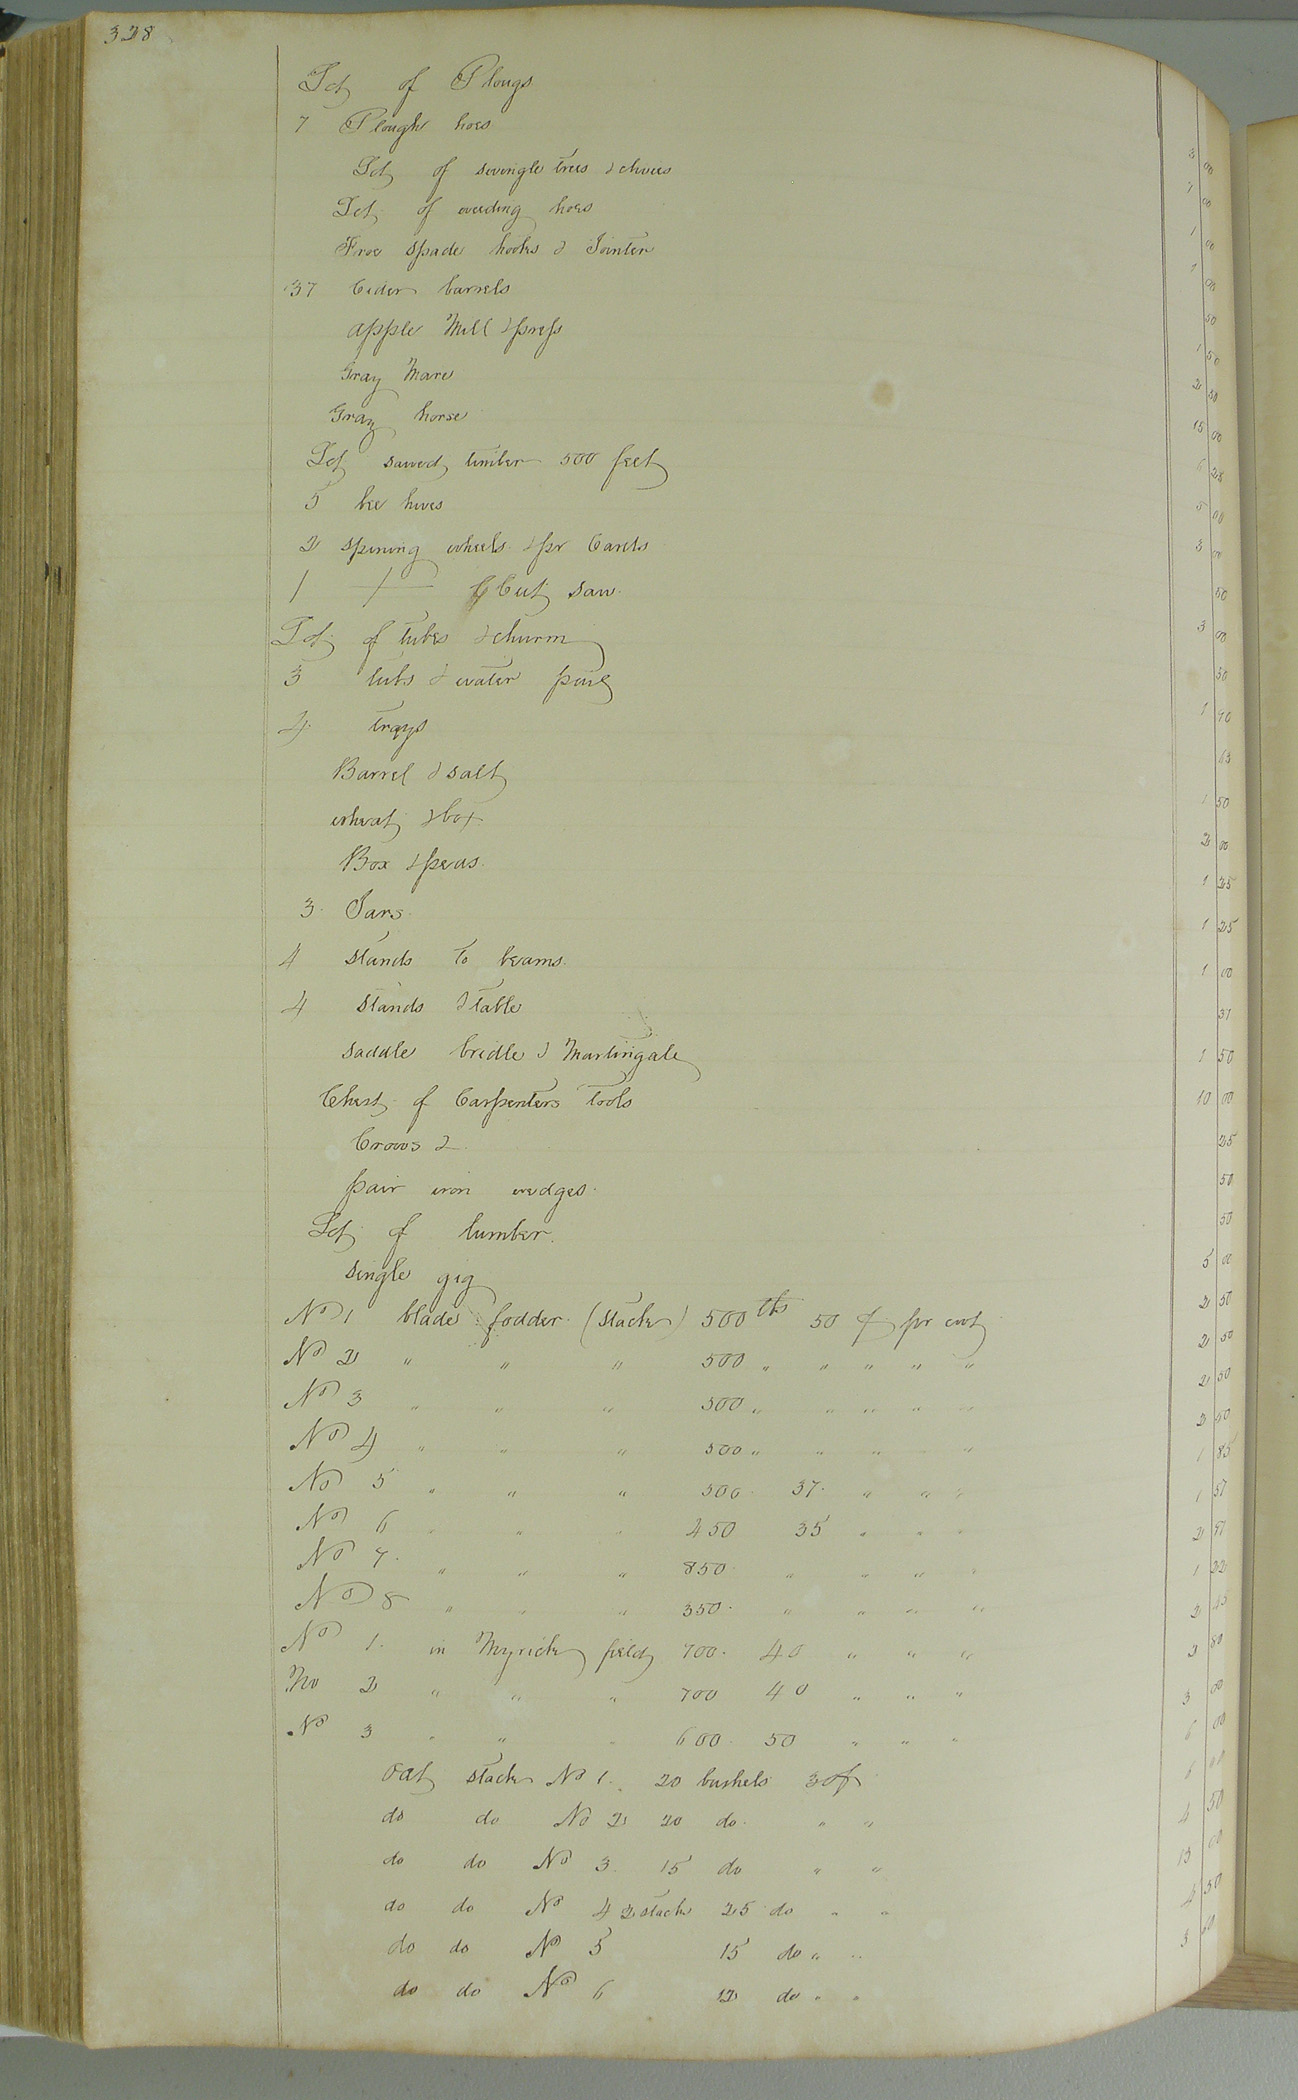 328
Lot of Plougs
7 Plough hoes
Lot of swingle trees & clivises
Lot of weeding hoes
Froe spade hooks & Jointer
37 Cider barrels
apple Mill & press
Gray Mare
Gray horse
Lot sawed timber 500 feet
5 bee hives
2 spining wheels & pr Cards
1 + Cut saw
Lot of tubs & churn
3 tubs & water pail
4 trays
Barrel & salt
wheat & box
Box & peas
3 Jars
4 stands to beams
4 stands & table
saddle bridle & Martingale
Chest of Carpenters Tools
Crows 2
pair iron wedges
Lot of lumber
single gig
No 1 blade fodder (stack) 500 lbs 50 ¢ pr cwt
No 2 " " " 500 " " " " "
No 3 " " " 500 " " " " "
No 4 " " " 500 " " " "
No 5 " " " 500 37 " " "
No 6 " " " 450 35 " " "
No 7 " " " 850 " " " "
No 8 " " " 350 " " " "
No 1 in Myrick field 700 40 " " "
No 2 " " " 700 40 " " "
No 3 " " " 600 50 " " "
oat stack No 1 20 bushels 30¢
do do No 2 20 do " "
do do No 3 15 do " "
do do No 4 2 stack 25 do " "
do do No 5 15 do " "
do do No 6 12 do " "
3 00
7 00
1 00
7 00
50
1 50
2 50
15 00
6 25
5 00
3 00
50
3 00
50
1 70
63
1 50
2 00
1 25
1 25
1 00
37
1 50
10 00
25
50
50
5 00
2 50
2 50
2 50
2 50
1 85
1 57
2 97
1 22
2 80
3 00
6 00
6 00
4 50
4 50